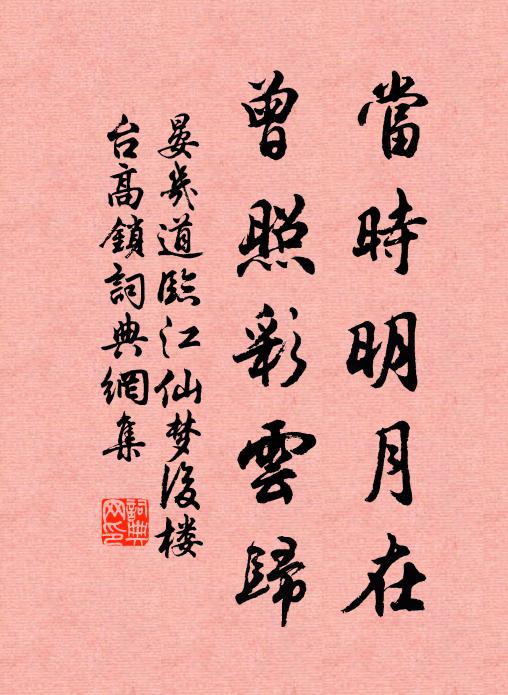 當時明月在
曾照彩雲歸
晏幾道臨江仙梦後楼
台高鎖詞典網集
詞典网印